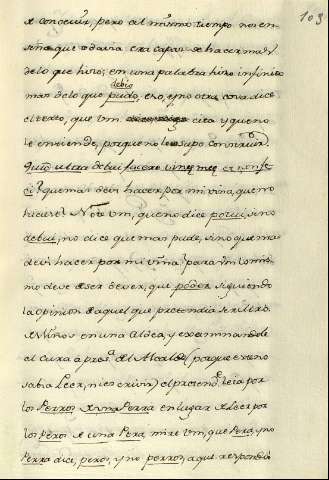 103
a conocerlo, pero al mismo tiempo nos en
seña que todavia era capaz de hacer mas
de lo que hizo; en una palabra hizo infinito
debio
mas de lo que pudo, eso, y no otra cosa dice
el texto, que Vm. cita y que no
le entiende, porque no lo supo construir.
Quid ultra debui facere vineæ meæ et non fe
ci? que mas devi hacer por mi viña, que no
hiciese? Note Vm, que no dice potui, sino
debui, no dice que mas pude, sino que mas
devi hacer por mi viña? para Vm lo mis
mo deve de ser dever, que poder siguiendo
la opinion de aquel que pretendia ser Mtro.
de Niños en una Aldea, y examinandole
el Cura a pres.a del Alcalde (porque este no
sabia Leer, ni escrivir) el pretend.te leia por
los Perros de una Perra en lugar de Leer por
los Peros de una Pera, mire Vm, que Pera, y no
Perra dice, peros, y no perros, a que respondió